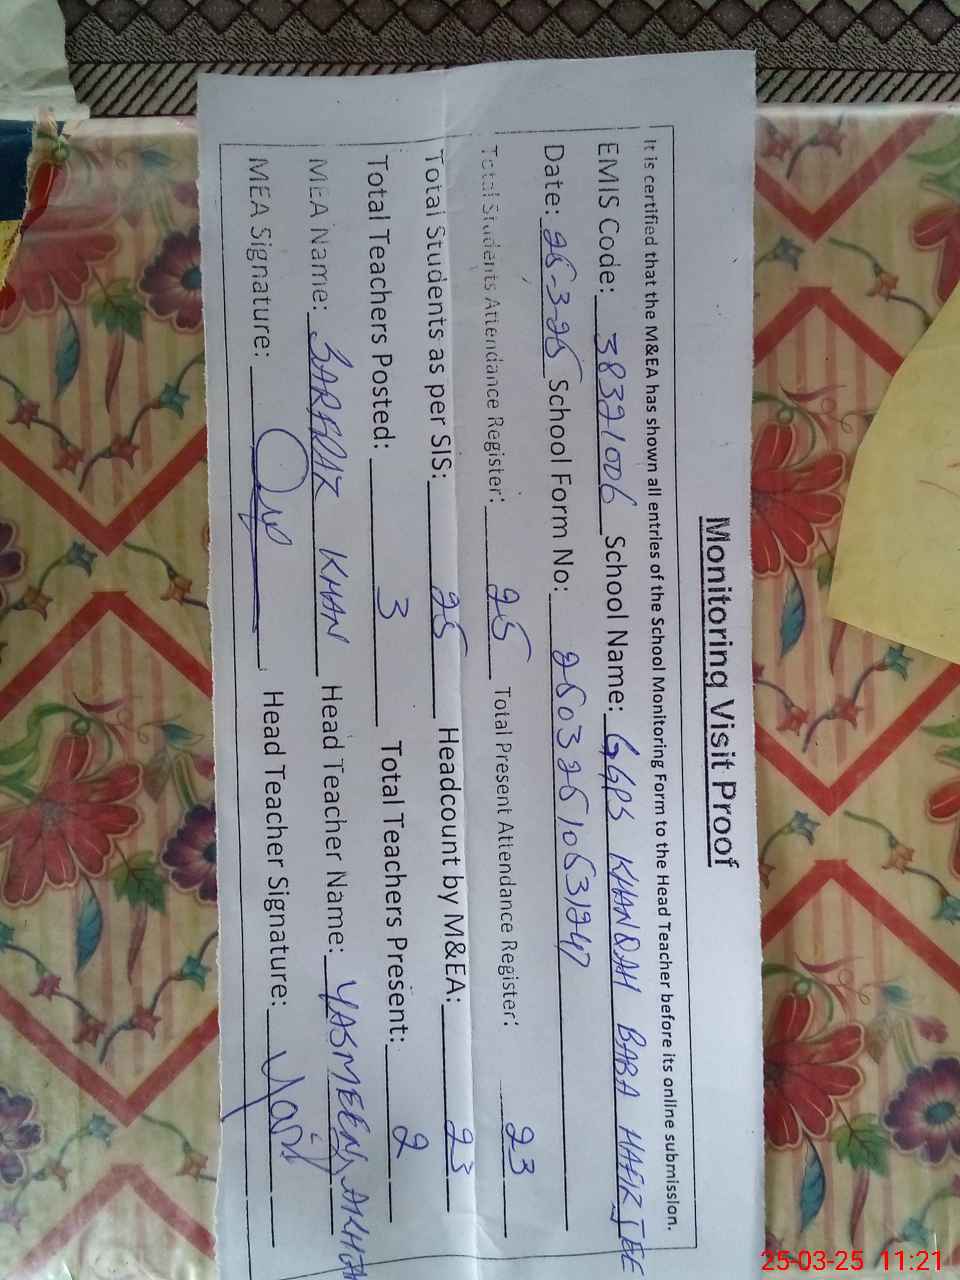 Monitoring Visit Proof
It is certified that the M&EA has shown all entries of the School Monitoring Form to the Head Teacher before its online submission.
EMIS Code: 38321006 School Name: GGPS KHANQAH BABA HAAK TEE
Date: 25-3-25 School Form No: 25032510531247
Total Students Attendance Register: 25 Total Present Attendance Register: 23
Total Students as per SIS: 25 Headcount by M&EA: 23
Total Teachers Posted: 3 Total Teachers Present: 2
MEA Name: SARFRAZ KHAN Head Teacher Name: YASMEEN
MEA Signature: Head Teacher Signature:
25-03-25 11:21